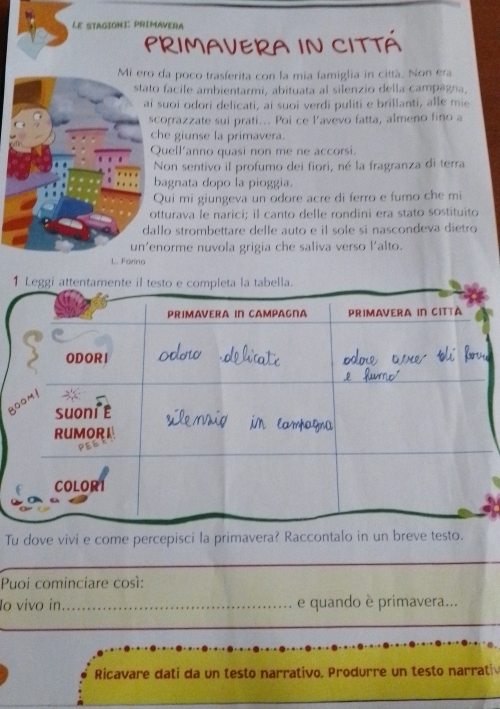 LE STAGIONI: PRIMAVERA
PRIMAVERA IN CITTÀ
Mi ero da poco trasferita con la mia famiglia in città. Non era
stato facile ambientarmi, abituata al silenzio della campagna,
ai suoi odori delicati, ai suoi verdi puliti e brillanti, alle mie
scorrazzate sui prati... Poi ce l'avevo fatta, almeno fino a
che giunse la primavera.
Quell'anno quasi non me ne accorsi.
Non sentivo il profumo dei fiori, né la fragranza di terra
bagnata dopo la pioggia.
Qui mi giungeva un odore acre di ferro e fumo che mi
otturava le narici; il canto delle rondini era stato sostituito
dallo strombettare delle auto e il sole si nascondeva dietro
un'enorme nuvola grigia che saliva verso l'alto.
L. Forino
1 Leggi attentamente il testo e completa la tabella.
PRIMAVERA IN CAMPAGNA PRIMAVERA IN CITTÀ
ODORI odoro delicati odore acre di
e fumo
BOOM!
SUONI E silenzio in campagna
RUMORI
COLORI
Tu dove vivi e come percepisci la primavera? Raccontalo in un breve testo.
Puoi cominciare così:
Io vivo in.......................................... e quando è primavera...
Ricavare dati da un testo narrativo. Produrre un testo narrativ